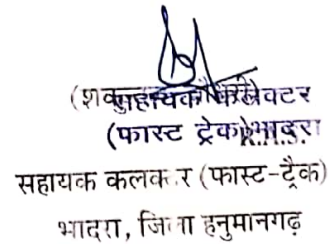 सहायक कलेक्टर
(फास्ट ट्रेक) भादरा
सहायक कलक्टर (फास्ट-ट्रैक)
भादरा, जिला हनुमानगढ़